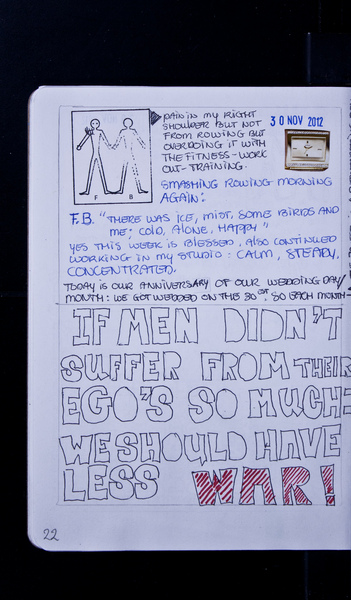 PAIN IN MY RIGHT
SHOULDER BUT NOT
FROM ROWING BUT
OVERDOING IT WITH
THE FITNESS-WORK
OUT-TRAINING.
30 NOV 2012
F B
SMASHING ROWING MORNING
AGAIN:
F.B. "THERE WAS ICE, MIST, SOME BIRDS AND
ME; COLD, ALONE, HAPPY"
YES THIS WEEK IS BLESSED, ALSO CONTINUED
WORKING IN MY STUDIO: CALM, STEADY,
CONCENTRATED.
TODAY IS OUR ANNIVERSARY OF OUR WEDDING DAY/
MONTH: WE GOT WEDDED ON THE 30st, SO EACH MONTH-
IF MEN DIDN'T
SUFFER FROM THEIR
EGO'S SO MUCH:
WE SHOULD HAVE
LESS WAR!
22